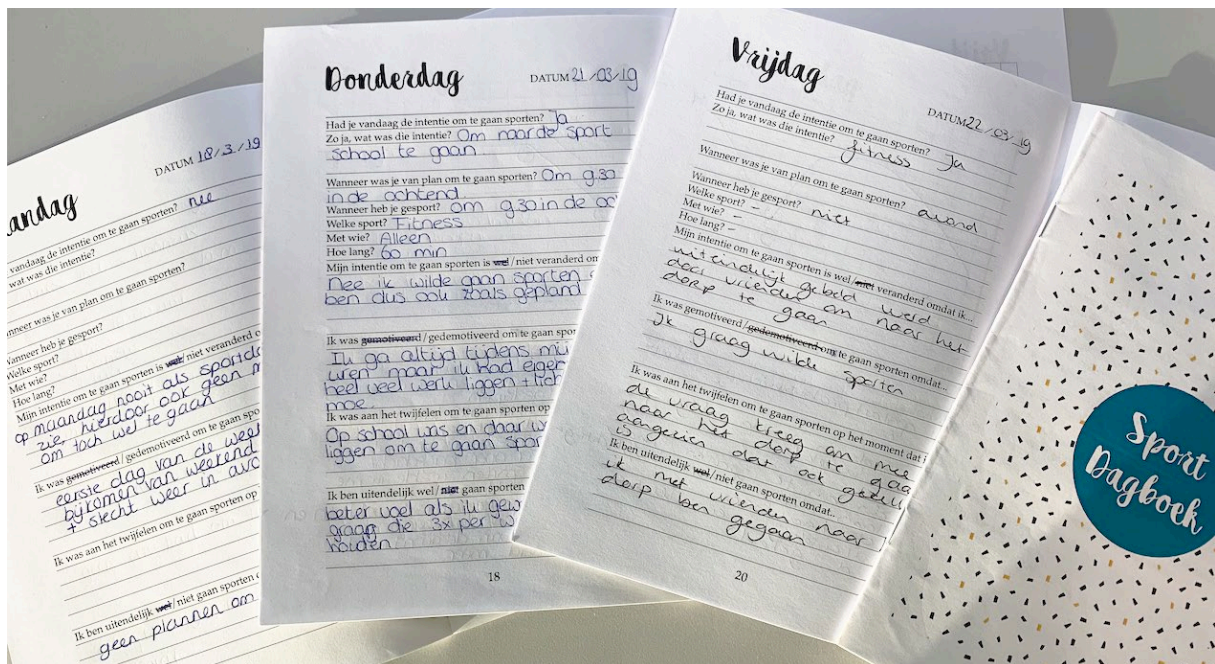 andag
DATUM 18/3/19
vandaag de intentie om te gaan sporten? nee
wat was die intentie?
nneer was je van plan om te gaan sporten?
Wanneer heb je gesport?
Welke sport?
Met wie?
Hoe lang?
Mijn intentie om te gaan sporten is wel/niet veranderd o
op maandag nooit als sportd
zie, hierdoor ook geen m
om toch wel te gaan
Ik was gemotiveerd/gedemotiveerd om te gaan spo
eerste dag van de week
bijkomen van weekend
+ slecht weer in avo
Ik was aan het twijfelen om te gaan sporten op
Ik ben uitendelijk wel/niet gaan sporten o
geen plannen om
Donderdag
DATUM 21/03/19
Had je vandaag de intentie om te gaan sporten? Ja
Zo ja, wat was die intentie? Om naar de sport
school te gaan
Wanneer was je van plan om te gaan sporten? Om 9.30
in de ochtend
Wanneer heb je gesport? Om 9.30 in de oc
Welke sport? Fitness
Met wie? Alleen
Hoe lang? 60 min
Mijn intentie om te gaan sporten is wel/niet veranderd om
Nee ik wilde gaan sporten
ben dus ook zoals gepland
Ik was gemotiveerd/gedemotiveerd om te gaan spor
Ik ga altijd tijdens mij
uren maar ik had eigen
heel veel werk liggen + lich
moe
Ik was aan het twijfelen om te gaan sporten op
Op school was en daar w
liggen om te gaan spor
Ik ben uitendelijk wel/niet gaan sporten
beter voel als ik gew
graag die 3x per w
houden
18
Vrijdag
DATUM 22/03/19
Had je vandaag de intentie om te gaan sporten? Ja
Zo ja, wat was die intentie? fitness
Wanneer was je van plan om te gaan sporten? avond
Wanneer heb je gesport? niet
Welke sport? -
Met wie? -
Hoe lang? -
Mijn intentie om te gaan sporten is wel/niet veranderd omdat ik...
uiteindelijk gebeld werd
door vrienden om naar het
dorp te gaan
Ik was gemotiveerd/gedemotiveerd om te gaan sporten omdat...
Ik graag wilde sporten
Ik was aan het twijfelen om te gaan sporten op het moment dat i
de vraag kreeg om mee
naar het dorp te gaa
aangezien dat ook gezell
is
Ik ben uitendelijk wel/niet gaan sporten omdat...
ik met vrienden naar
dorp ben gegaan
20
Sport
Dagboek